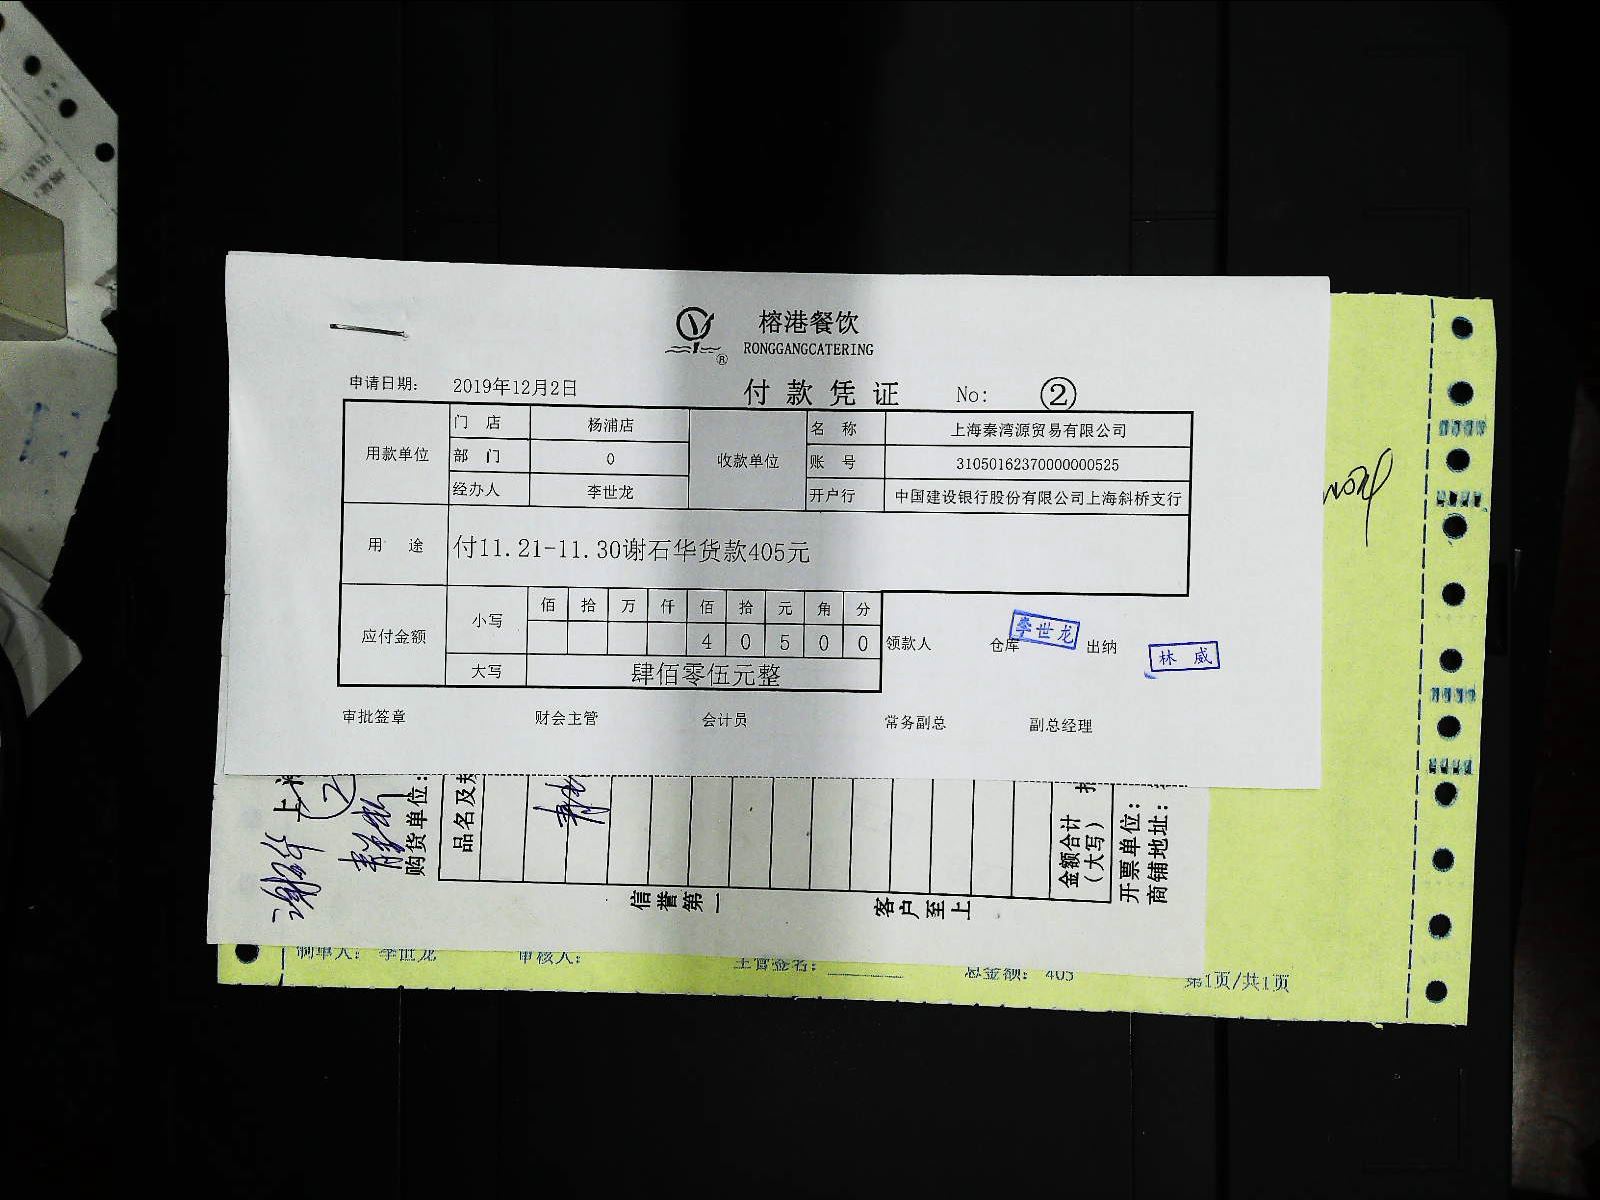 榕港餐饮
RONGGANGCATERING
®
申请日期: 2019年12月2日 付款凭证 No: ②
用款单位 门店 杨浦店 收款单位 名称 上海秦湾源贸易有限公司
部门 0 账号 31050162370000000525
经办人 李世龙 开户行 中国建设银行股份有限公司上海斜桥支行
用途 付11.21-11.30谢石华货款405元
应付金额 小写 佰 拾 万 仟 佰 拾 元 角 分
4 0 5 0 0
大写 肆佰零伍元整
领款人 仓库 李世龙 出纳 林威
审批签章 财会主管 会计员 常务副总 副总经理
上
2
购货单位:
品名及规
金额合计
(大写)
开票单位:
商铺地址:
信誉第一
客户至上
制单人: 李世龙 审核人: 主管签名: 总金额: 405 第1页/共1页